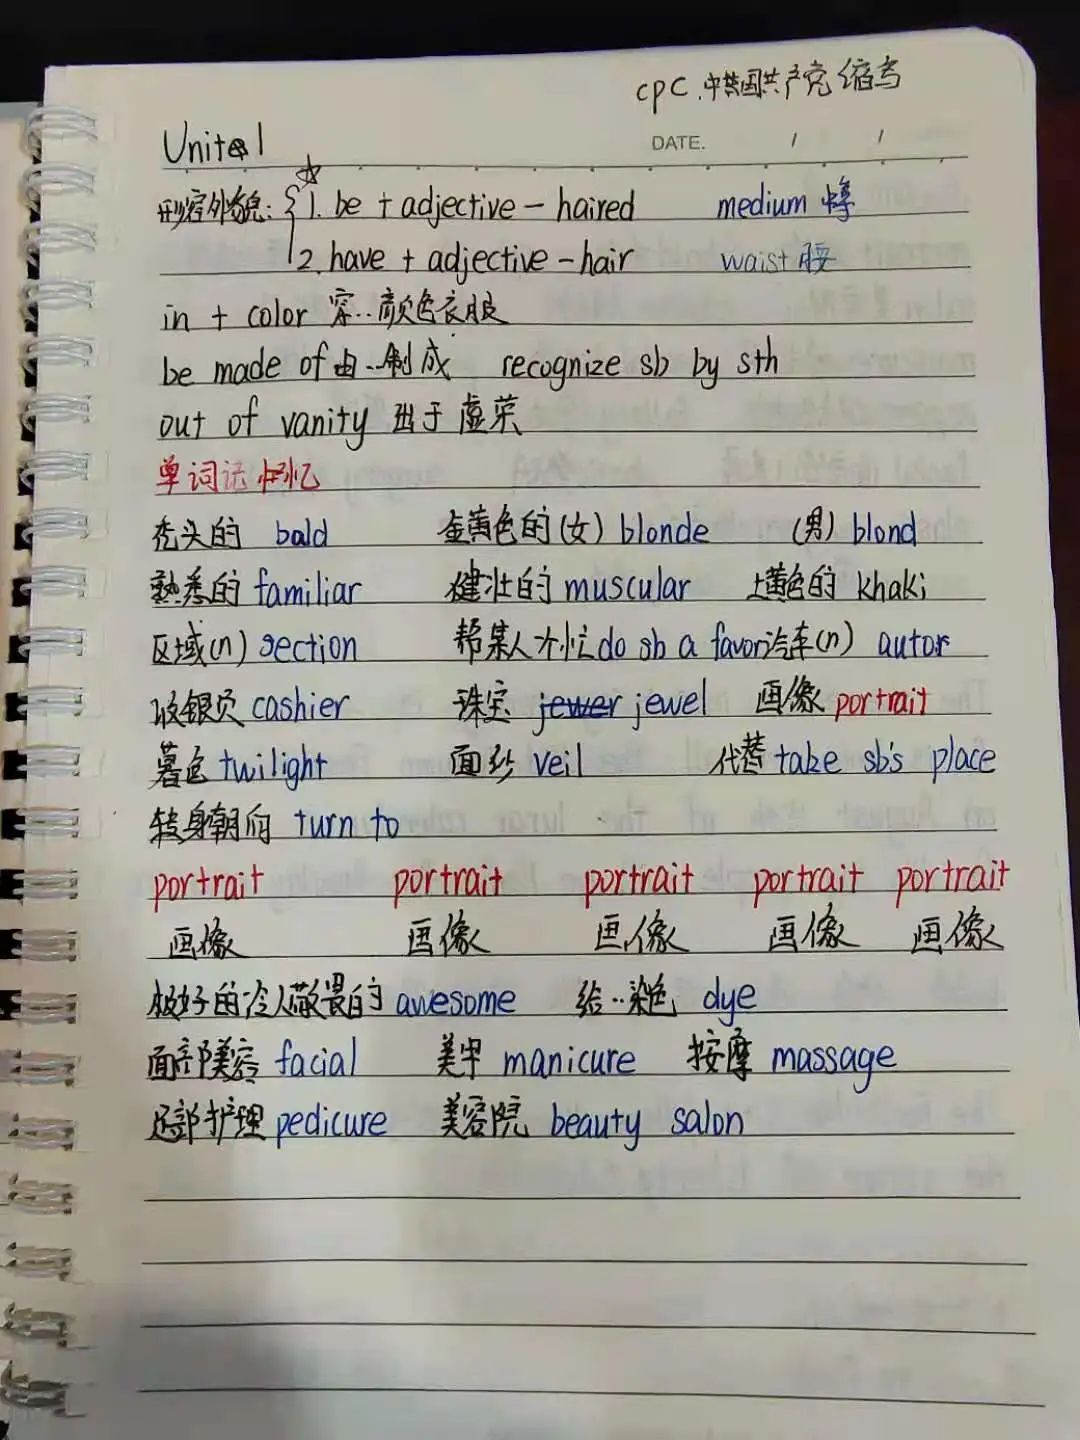 cpc.中共国共产党缩写
Unit 1
DATE. / /
形容外貌: { ☆1. be + adjective - haired medium 中等
2. have + adjective - hair waist 腰
in + color 穿..颜色衣服
be made of 由..制成 recognize sb by sth
out of vanity 出于虚荣
单词记忆
秃头的 bald 金黄色的(女) blonde (男) blond
熟悉的 familiar 健壮的 muscular 土黄色的 khaki
区域(n) section 帮某人大忙 do sb a favor 汽车(n) autor
收银员 cashier 珠宝 jewer jewel 画像 portrait
暮色 twilight 面纱 veil 代替 take sb's place
转身朝向 turn to
portrait portrait portrait portrait portrait
画像 画像 画像 画像 画像
极好的令人敬畏的 awesome 给..染色 dye
面部美容 facial 美甲 manicure 按摩 massage
足部护理 pedicure 美容院 beauty salon